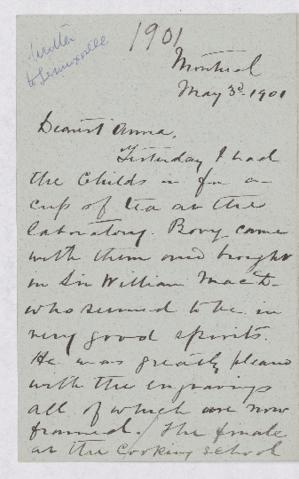 1901
Written
to Lennoxville
Montreal
May 3d 1901
Dearest Anna,
Yesterday I had
the Childs in for a
cup of tea at the
laboratory. Bovey came
with them and brought
in Sir William MacD-
who seemed to be in
very good spirits.
He was greatly pleased
with the engravings
all of which are now
framed. The finale
at the cooking school